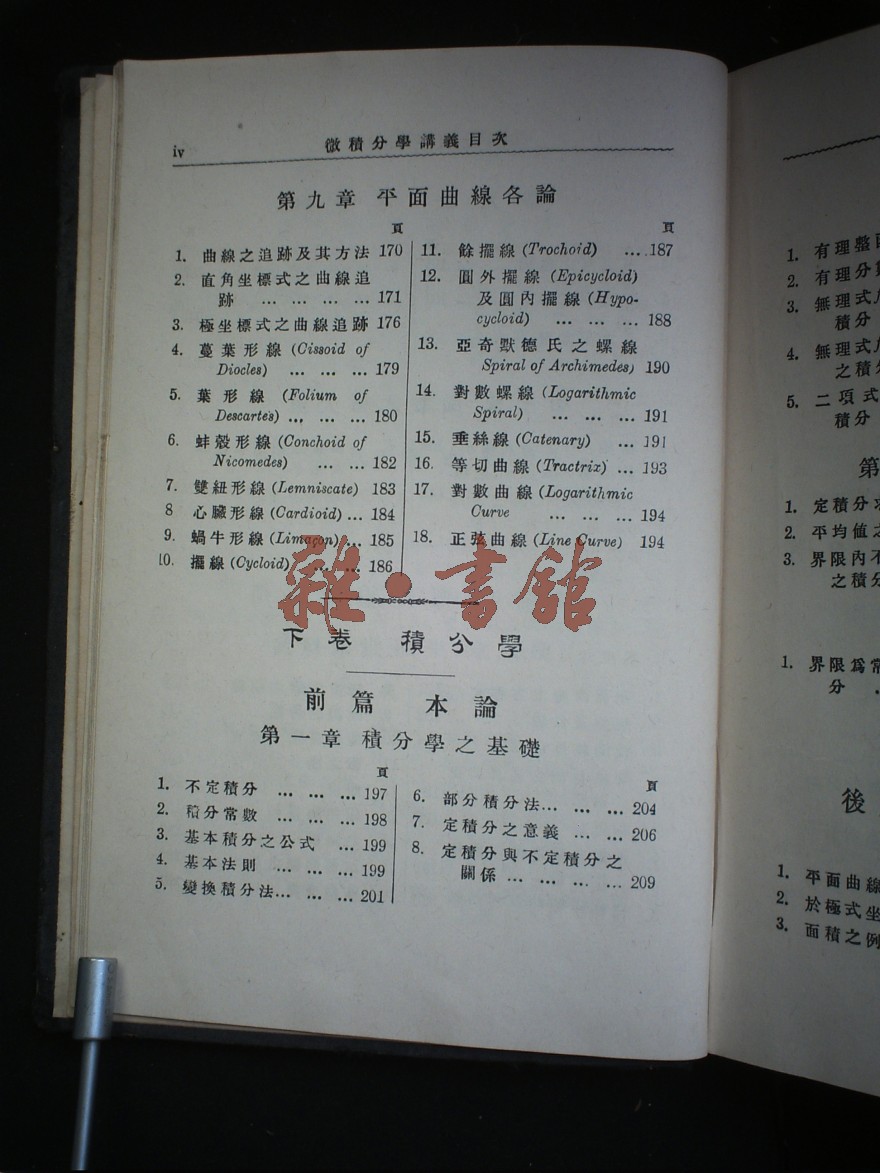 iv
微積分學講義目次
第九章 平面曲線各論
頁
1. 曲線之追跡及其方法 170
2. 直角坐標式之曲線追
跡 ... ... ... ... 171
3. 極坐標式之曲線追跡 176
4. 蔓葉形線 (Cissoid of
Diocles) ... ... ... 179
5. 葉形線 (Folium of
Descartes) ... ... ... 180
6. 蚌殼形線 (Conchoid of
Nicomedes) ... ... 182
7. 雙紐形線 (Lemniscate) 183
8 心臟形線 (Cardioid) ... 184
9. 蝸牛形線 (Limaçon) ... 185
10. 擺線 (Cycloid) ... ... 186
頁
11. 餘擺線 (Trochoid) .... 187
12. 圓外擺線 (Epicycloid)
及圓內擺線 (Hypo-
cycloid) ... ... ... 188
13. 亞奇默德氏之螺線
Spiral of Archimedes) 190
14. 對數螺線 (Logarithmic
Spiral) ... ... ... 191
15. 垂絲線 (Catenary) ... 191
16. 等切曲線 (Tractrix) ... 193
17. 對數曲線 (Logarithmic
Curve ... ... ... 194
18. 正弦曲線 (Line Curve) 194
雜·書館
下卷 積分學
前篇 本論
第一章 積分學之基礎
頁
1. 不定積分 ... ... ... 197
2. 積分常數 ... ... ... 198
3. 基本積分之公式 ... 199
4. 基本法則 ... ... ... 199
5. 變換積分法 ... ... ... 201
頁
6. 部分積分法 ... ... ... 204
7. 定積分之意義 ... ... 206
8. 定積分與不定積分之
關係 ... ... ... ... 209
1. 有理整函
2. 有理分數
3. 無理式
積分
4. 無理式
之積分
5. 二項式
積分
第
1. 定積分
2. 平均值之
3. 界限內不
之積分
1. 界限爲常
分
後
1. 平面曲線
2. 於極式坐
3. 面積之例